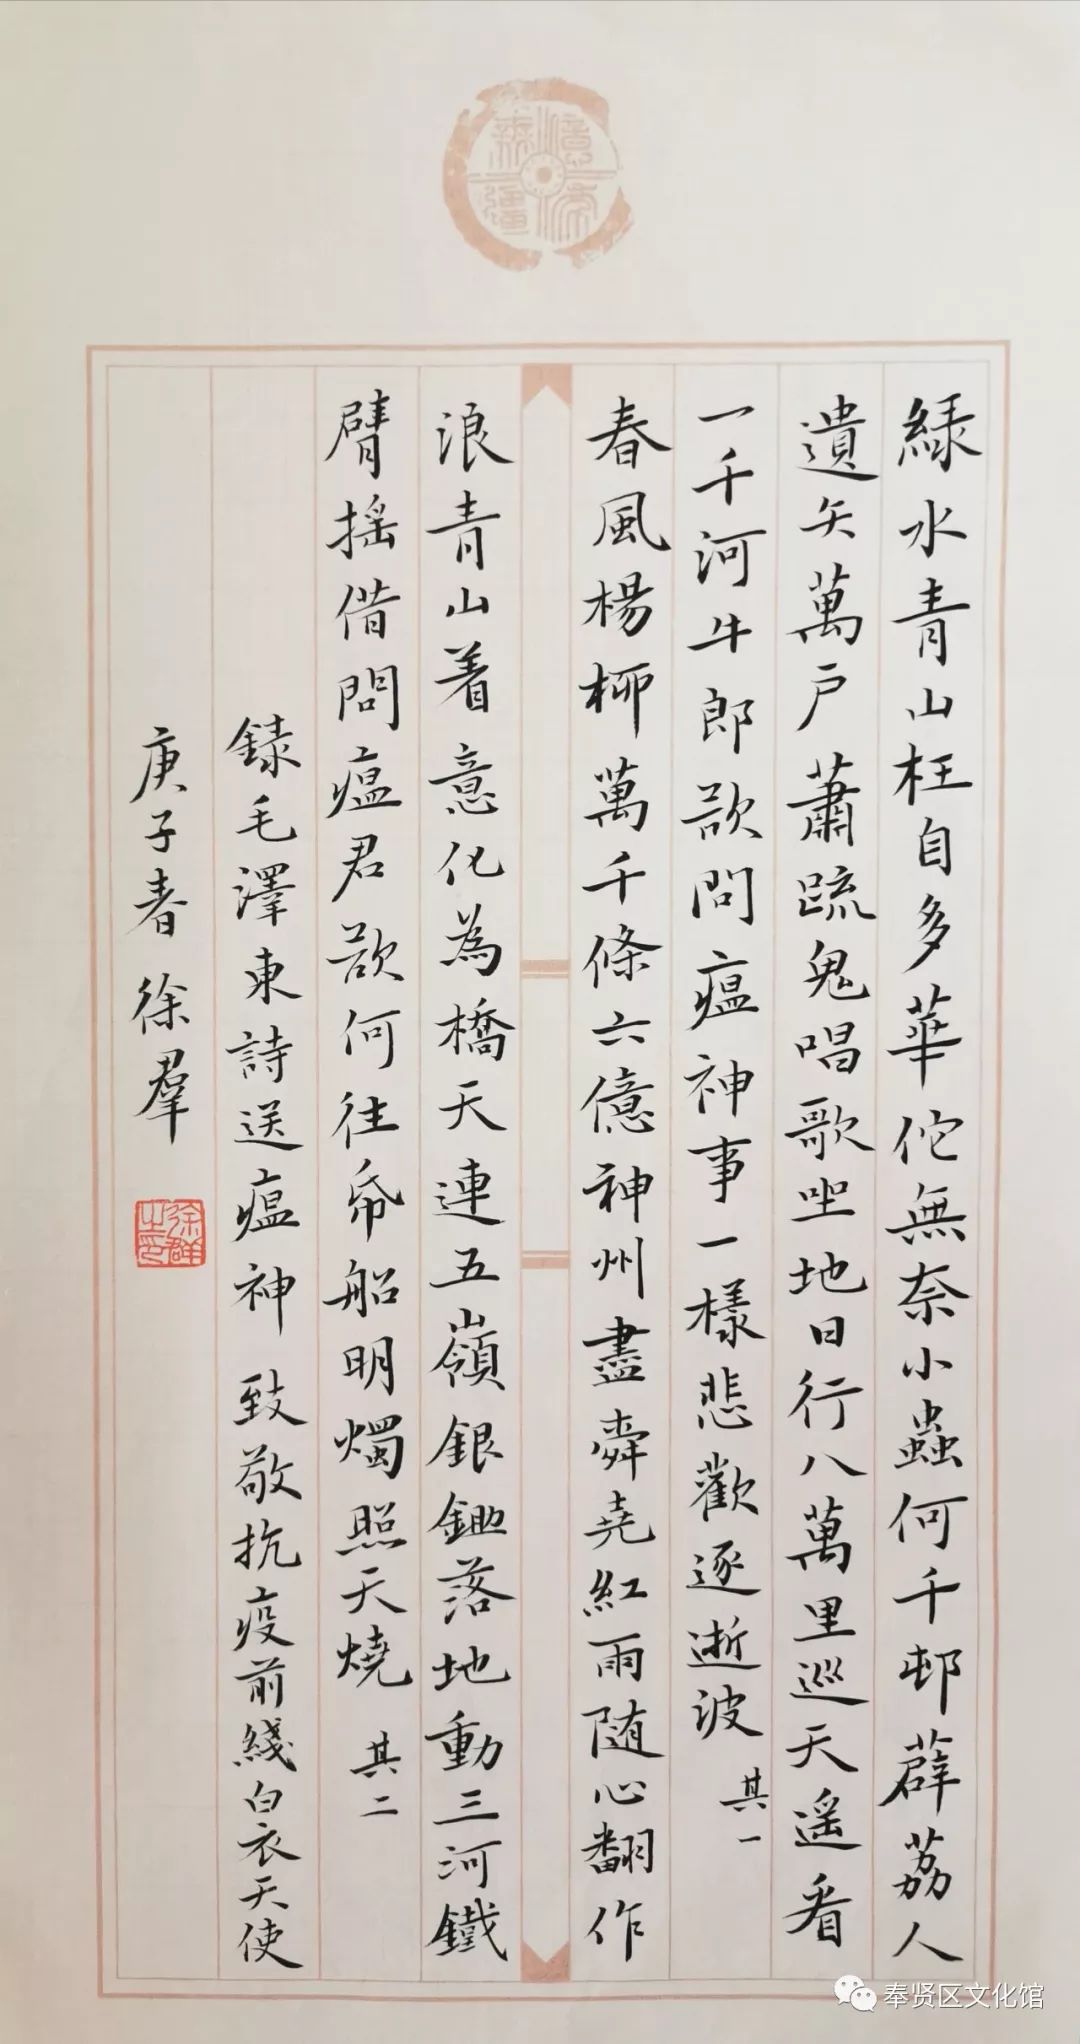 綠水青山枉自多華佗無奈小蟲何千邨薜荔人
遺矢萬戶蕭疏鬼唱歌坐地日行八萬里巡天遥看
一千河牛郎欲問瘟神事一樣悲歡逐逝波 其一
春風楊柳萬千條六億神州盡舜堯紅雨随心翻作
浪青山着意化為橋天連五嶺銀鋤落地動三河鐵
臂摇借問瘟君欲何往帋船明燭照天燒 其二
録毛澤東詩送瘟神 致敬抗疫前綫白衣天使
庚子春 徐羣
徐群之印
奉贤区文化馆